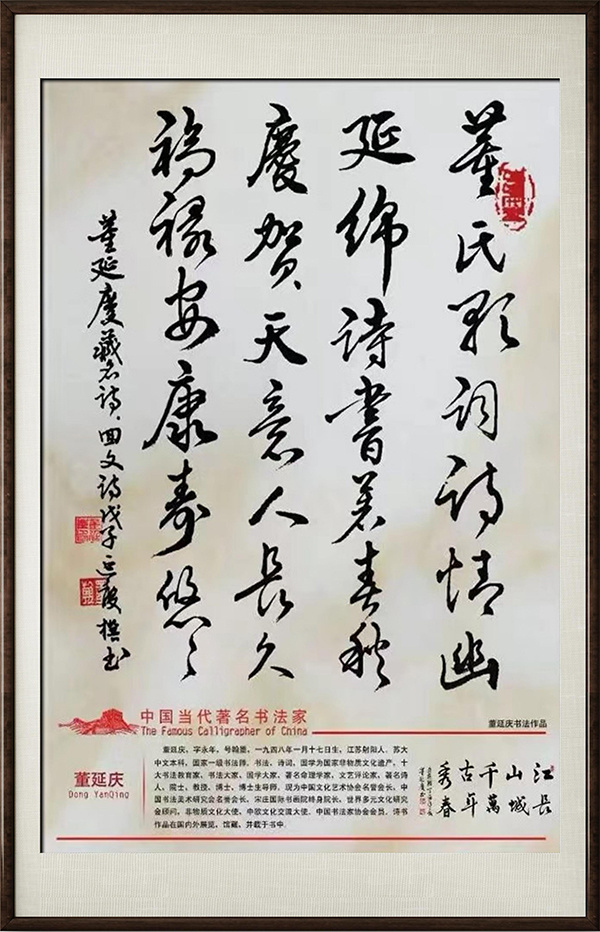 董氏歌词诗情幽
延綿詩書著春秋
慶賀天意人長久
福祿安康壽悠悠
董延慶藏名詩、回文詩戊子延慶撰書
中国当代著名书法家
The Famous Calligrapher of China
董延庆书法作品
董延庆
Dong YanQing
董延庆，字永年，号翰墨，一九四八年一月十七日生，江苏射阳人，苏大
中文本科，国家一级书法师，书法、诗词、国学为国家非物质文化遗产，十
大书法教育家、书法大家、国学大家、著名命理学家，文艺评论家，著名诗
人，院士，教授，博士，博士生导师，现为中国文化艺术协会名誉会长，中
国书法美术研究会名誉会长，宋庄国际书画院终身院长，世界多元文化研究
会顾问，非物质文化大使，中欧文化交流大使，中国书法家协会会员，诗书
作品在国内外展览，馆藏，并载于书中。
江山千古秀
長城萬年春